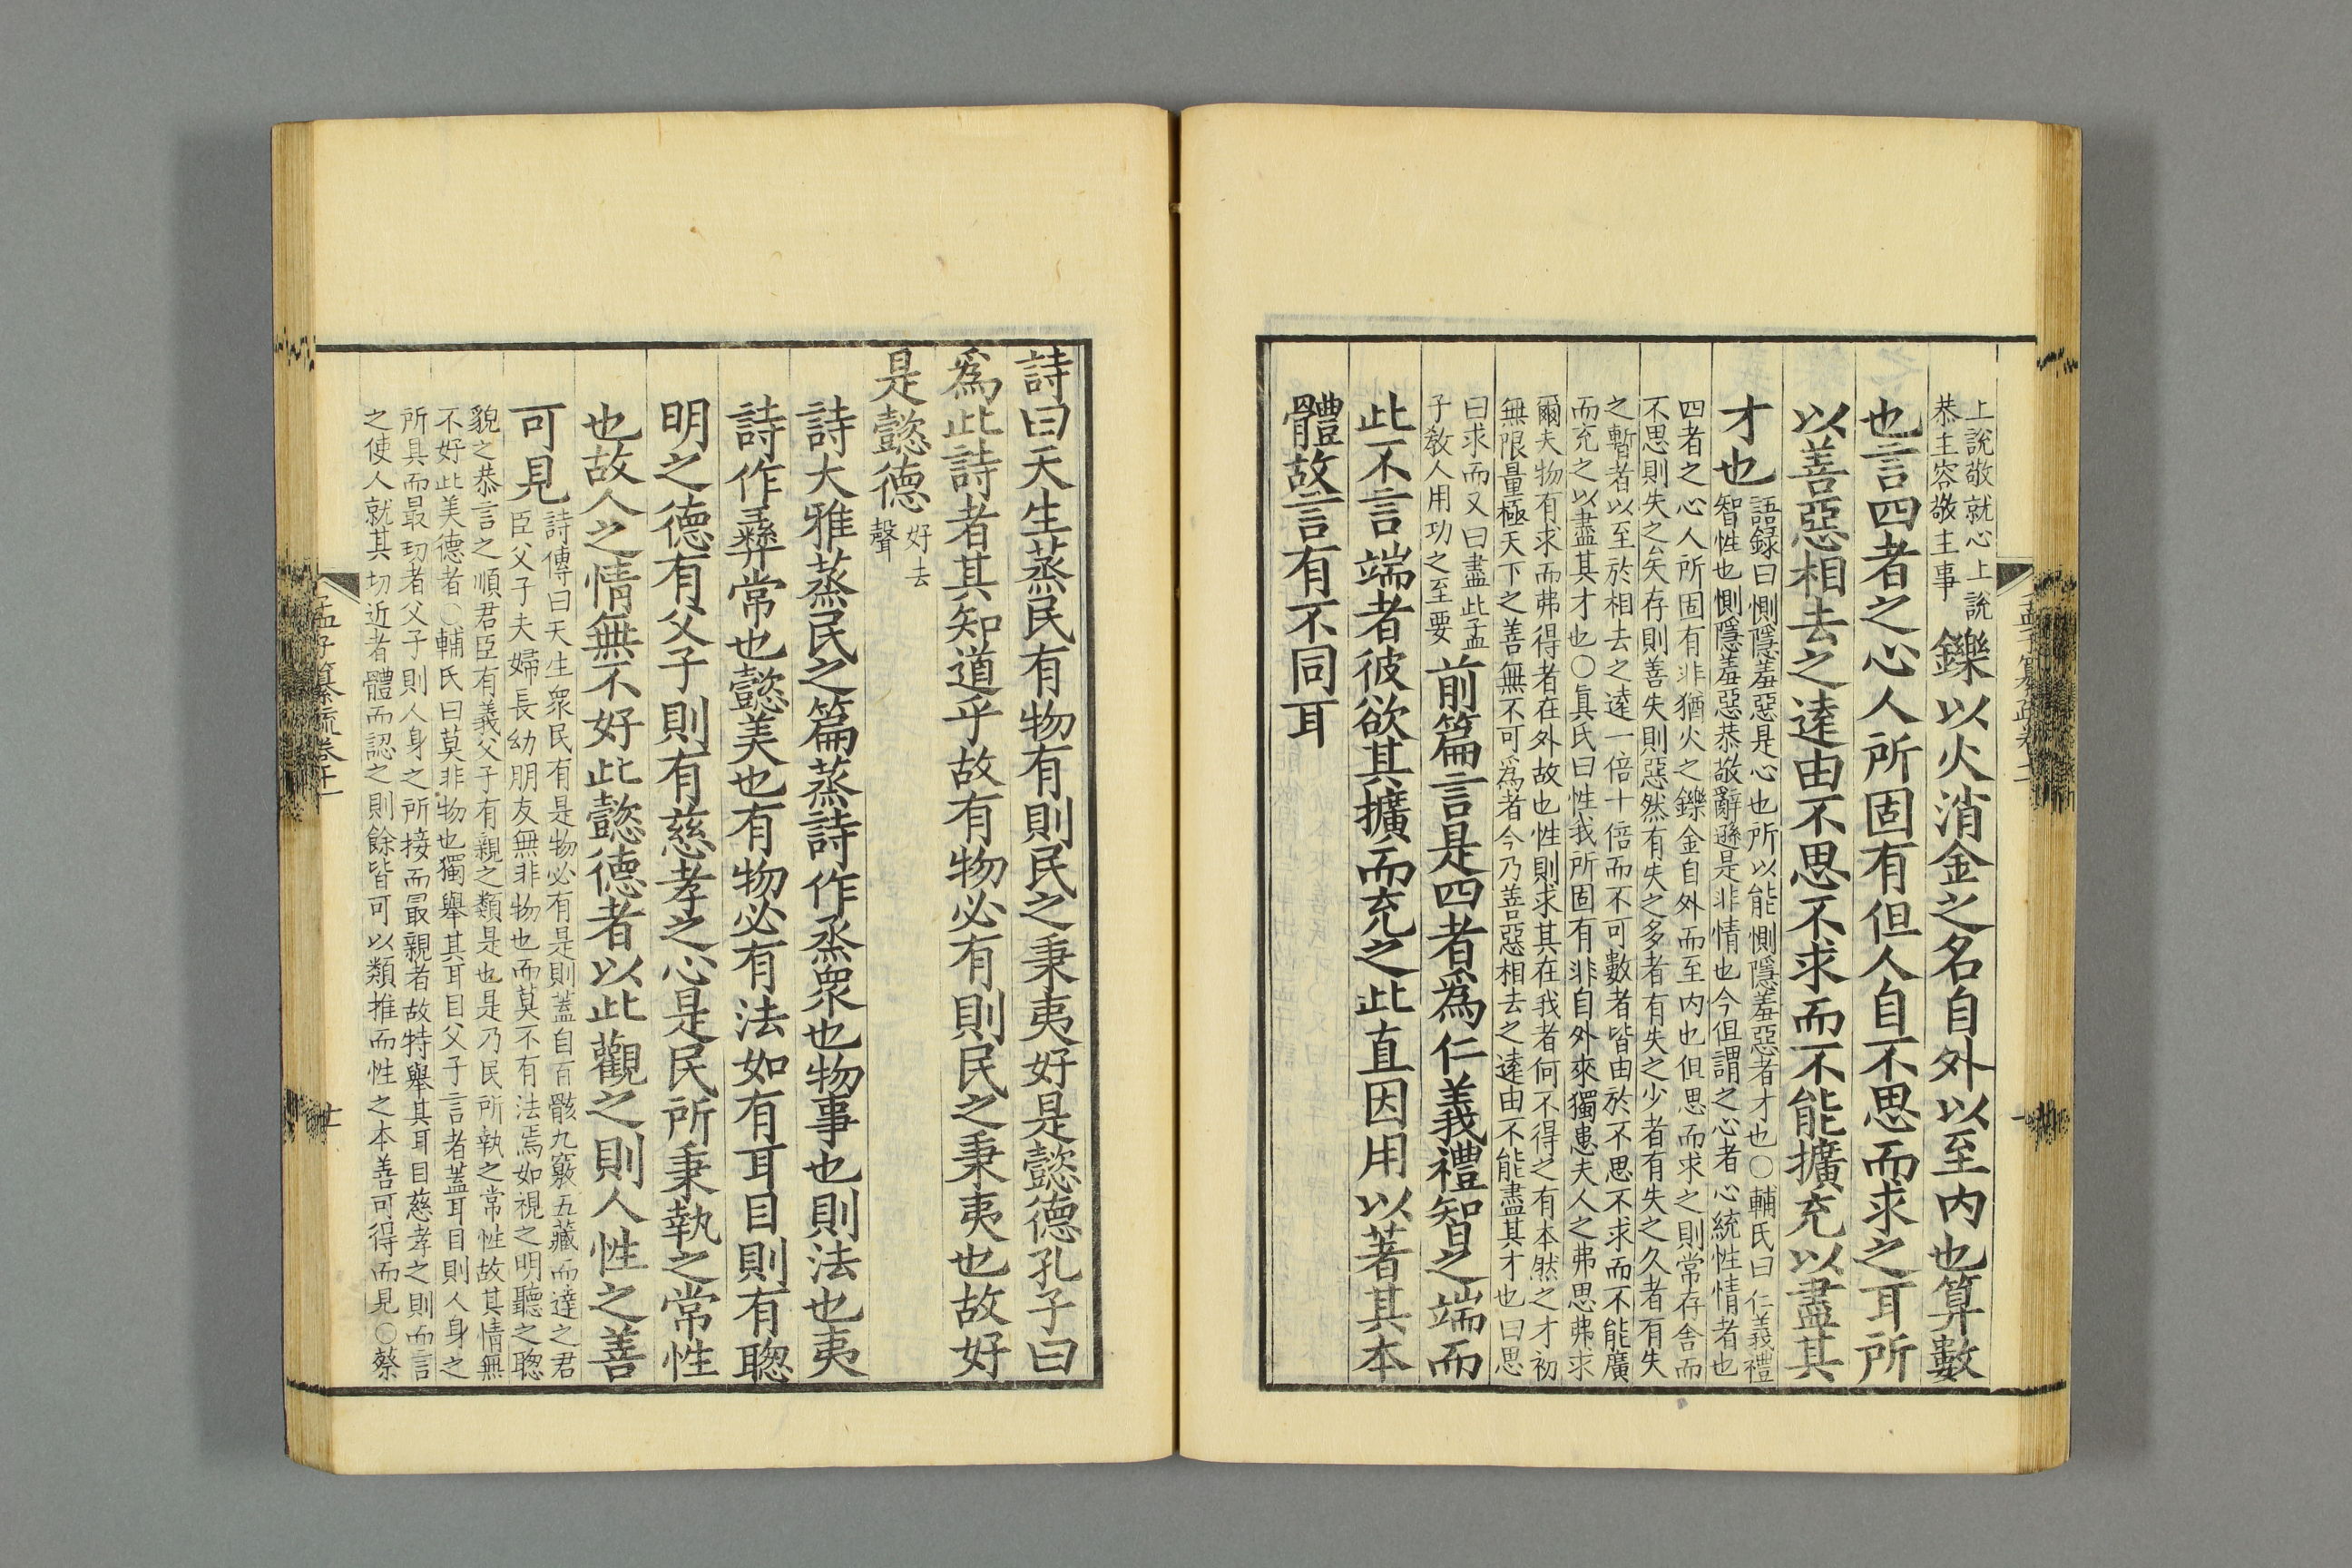 上說敬就心上說
恭主容敬主事
鑠以火消金之名自外以至内也算數
也言四者之心人所固有但人自不思而求之耳所
以善惡相去之遠由不思不求而不能擴充以盡其
才也
語録曰惻隱羞惡是心也所以能惻隱羞惡者才也○輔氏曰仁義禮
智性也惻隱羞惡恭敬辭遜是非情也今但謂之心者心統性情者也
四者之心人所固有非猶火之鑠金自外而至内也但思而求之則常存舍而
不思則失之矣存則善失則惡然有失之多者有失之少者有失之久者有失
之暫者以至於相去之遠一倍十倍而不可數者皆由於不思不求而不能廣
而充之以盡其才也○真氏曰性我所固有非自外來獨患夫人之弗思弗求
爾夫物有求而弗得者在外故也性則求其在我者何不得之有本然之才初
無限量極天下之善無不可爲者今乃善惡相去之遠由不能盡其才也曰思
曰求而又曰盡此孟
子教人用功之至要
前篇言是四者爲仁義禮智之端而
此不言端者彼欲其擴而充之此直因用以著其本
體故言有不同耳
詩曰天生蒸民有物有則民之秉夷好是懿德孔子曰
爲此詩者其知道乎故有物必有則民之秉夷也故好
是懿德
好去
聲
詩大雅蒸民之篇蒸詩作烝衆也物事也則法也夷
詩作彛常也懿美也有物必有法如有耳目則有聦
明之德有父子則有慈孝之心是民所秉執之常性
也故人之情無不好此懿德者以此觀之則人性之善
可見
詩傳曰天生衆民有是物必有是則蓋自百骸九竅五藏而達之君
臣父子夫婦長幼朋友無非物也而莫不有法焉如視之明聽之聦
貌之恭言之順君臣有義父子有親之類是也是乃民所執之常性故其情無
不好此美德者○輔氏曰莫非物也獨舉其耳目父子言者蓋耳目則人身之
所具而最切者父子則人身之所接而最親者故特舉其耳目慈孝之則而言
之使人就其切近者體而認之則餘皆可以類推而性之本善可得而見○蔡
孟子纂疏卷十一